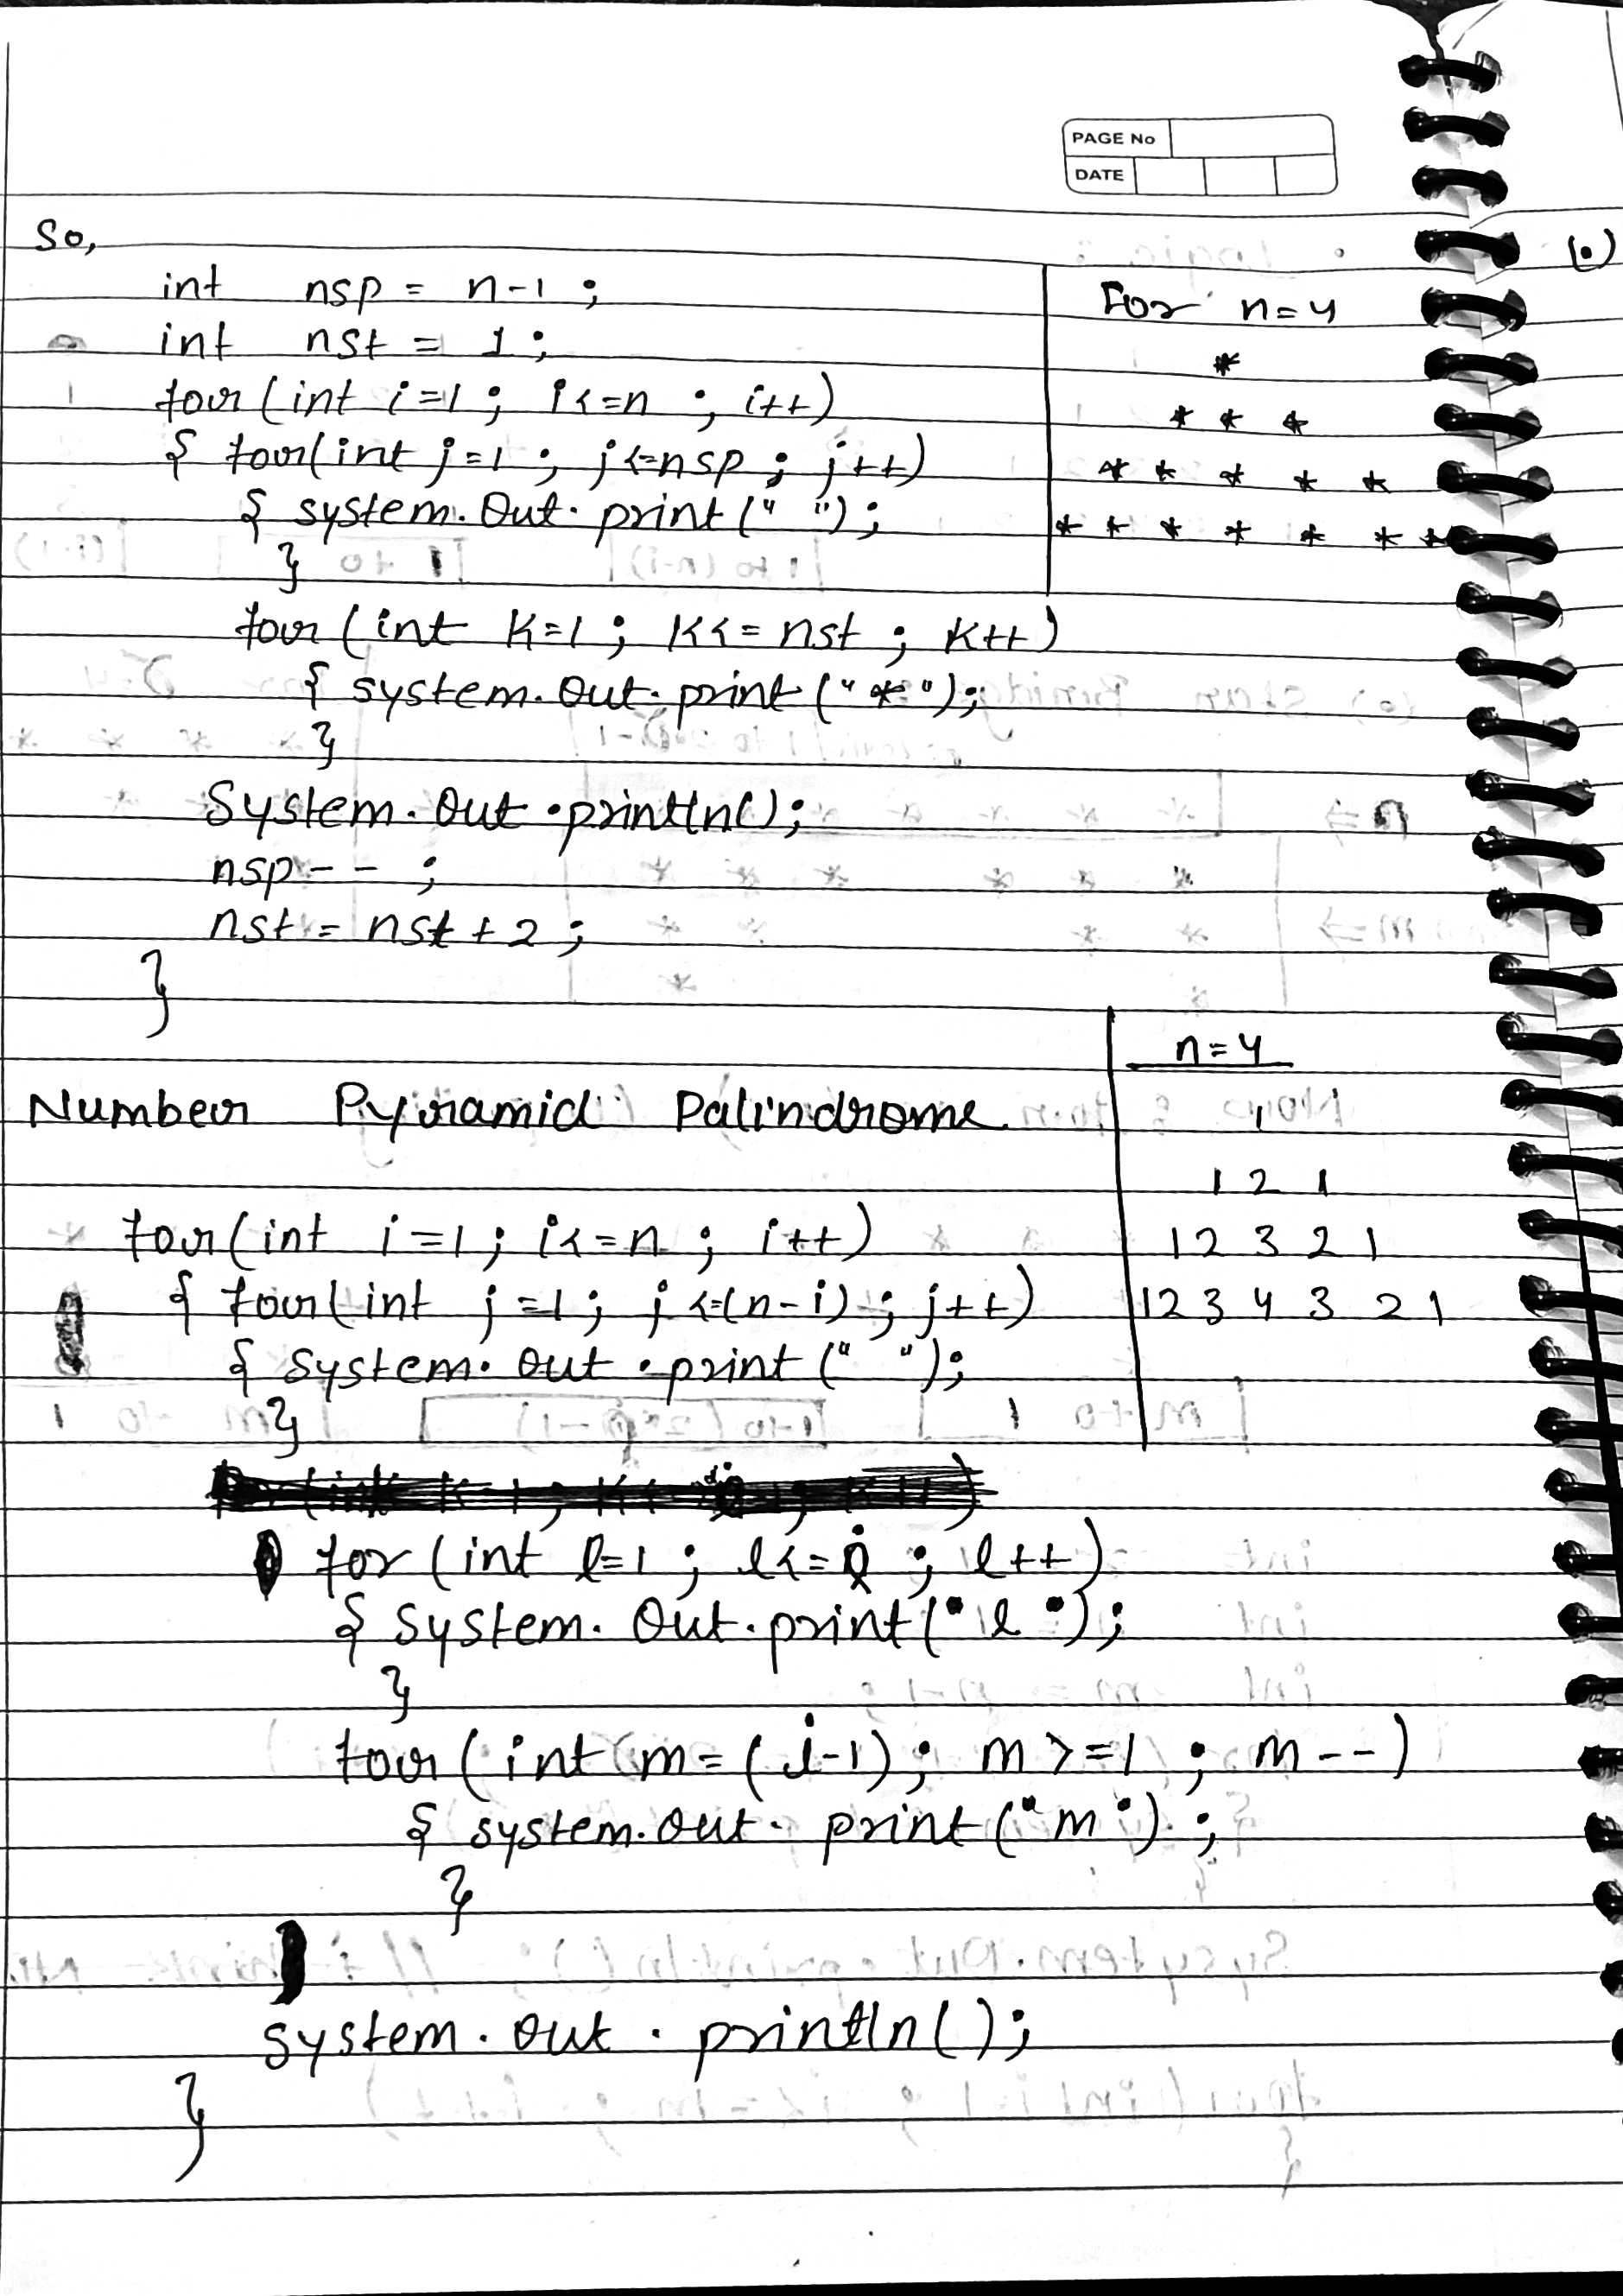 PAGE No
DATE
So,
int nsp = n-1 ;
int nst = 1 ;
for (int i=1 ; i<=n ; i++)
{ for(int j=1 ; j<=nsp ; j++)
{ system.Out.print(" ");
}
for (int K=1 ; K<=nst ; K++)
{ system.out.print("*");
}
System.Out.println();
nsp-- ;
nst = nst+2 ;
}
For n=4
*
* * *
* * * * *
* * * * * * *
Number Pyramid Palindrome
for(int i=1 ; i<=n ; i++)
{ for(int j=1 ; j<=(n-i) ; j++)
{ System.out.print(" ");
}
for (int l=1 ; l<=i ; l++)
{ System.Out.print( l );
}
for (int m=(i-1) ; m>=1 ; m--)
{ system.out.print( m ) ;
}
system.out.println();
}
n=4
1
1 2 1
1 2 3 2 1
1 2 3 4 3 2 1